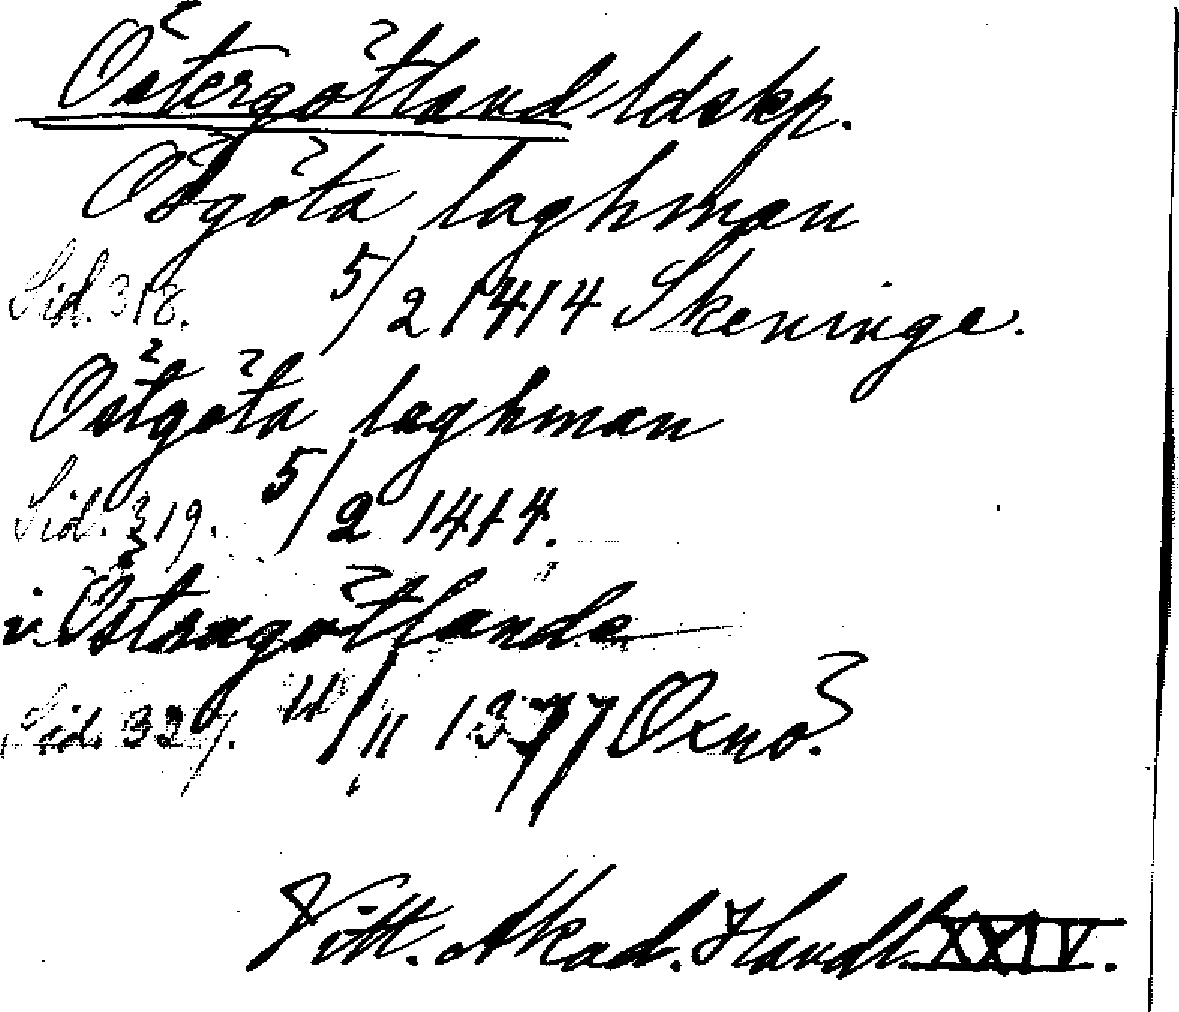 Östergötland ldskp.
Ösgöta laghman
Sid. 318. 5/2 1414 Skeninge.
Östgöta laghman
Sid. 319. 5/2 1414.
i Östragötlande
Sid. 327. 11/11 1377 Oxnö.
Vitt. Akad. Handl. XXIV.